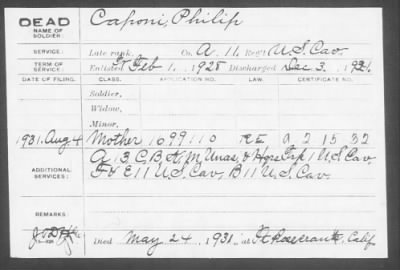 DEAD
NAME OF SOLDIER:
Caponi, Philip
SERVICE:
Late rank, Co. A 11, Reg't U.S. Cav.
TERM OF SERVICE:
Enlisted Feb 1, 1928 Discharged Dec 3, 19
DATE OF FILING. CLASS. APPLICATION NO. LAW. CERTIFICATE NO.
Soldier,
Widow,
Minor,
1931 Aug 4 Mother 1699110 RE A 2 15 32
A, 13, C, B, & Hdrs Trp 11 U.S. Cav
ADDITIONAL SERVICES:
F & E 11 U.S. Cav, B 11 U.S. Cav.
REMARKS:
Died May 24, 1931, at Ft Rosecrans, Calif